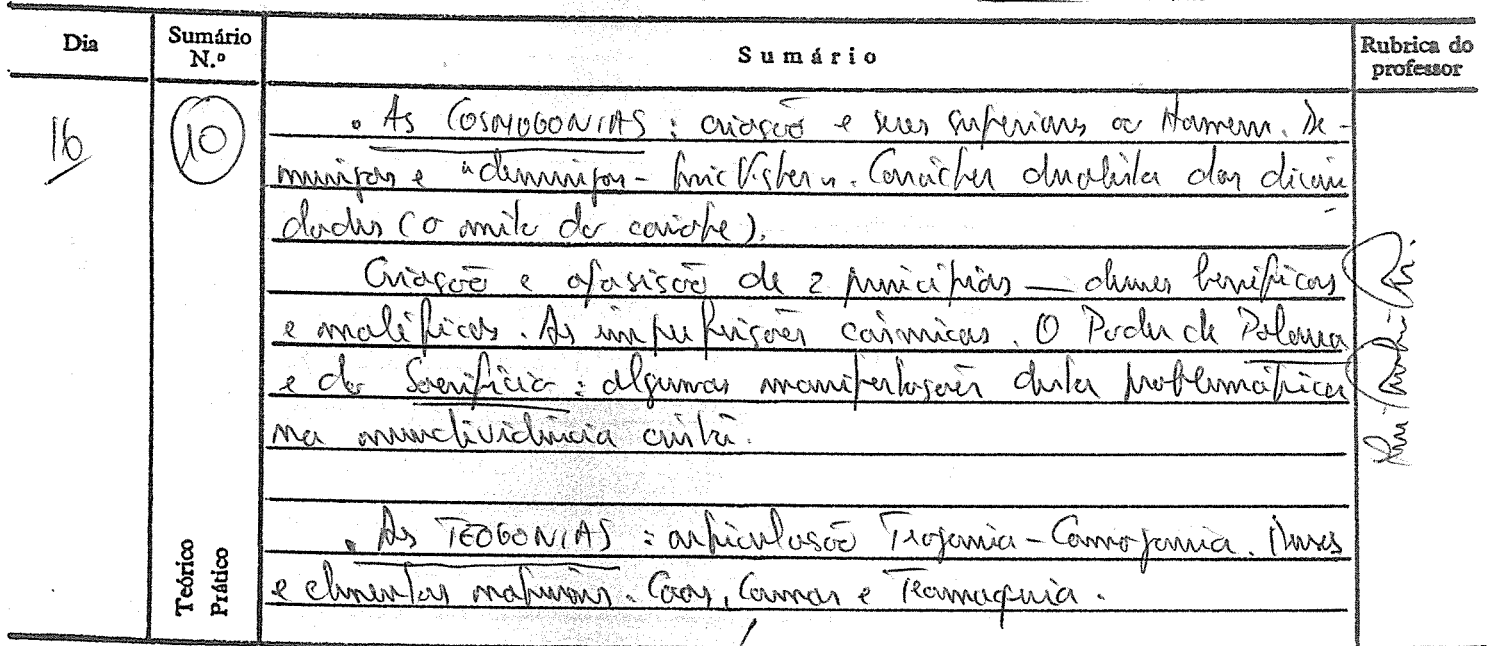 Dia
Sumário N.º
Sumário
Rubrica do professor
16
10
. As COSMOGONIAS : criação e seres superiores ao Homem. De-
miurgos e "demiurgos- ". Carácter dualista das divin
dades (o mito do coiote).
Criação e oposição de 2 princípios — deuses benéficos
e maléficos. As imperfeições cósmicas. O Poder da Palavra
e do Sacrifício : algumas manifestações desta problemática
na mundividência cristã.
. As TEOGONIAS : articulação Teogonia - Cosmogonia. Deuses
e elementos naturais. Caos, Cosmos e Teomaquia.
Teórico
Prático